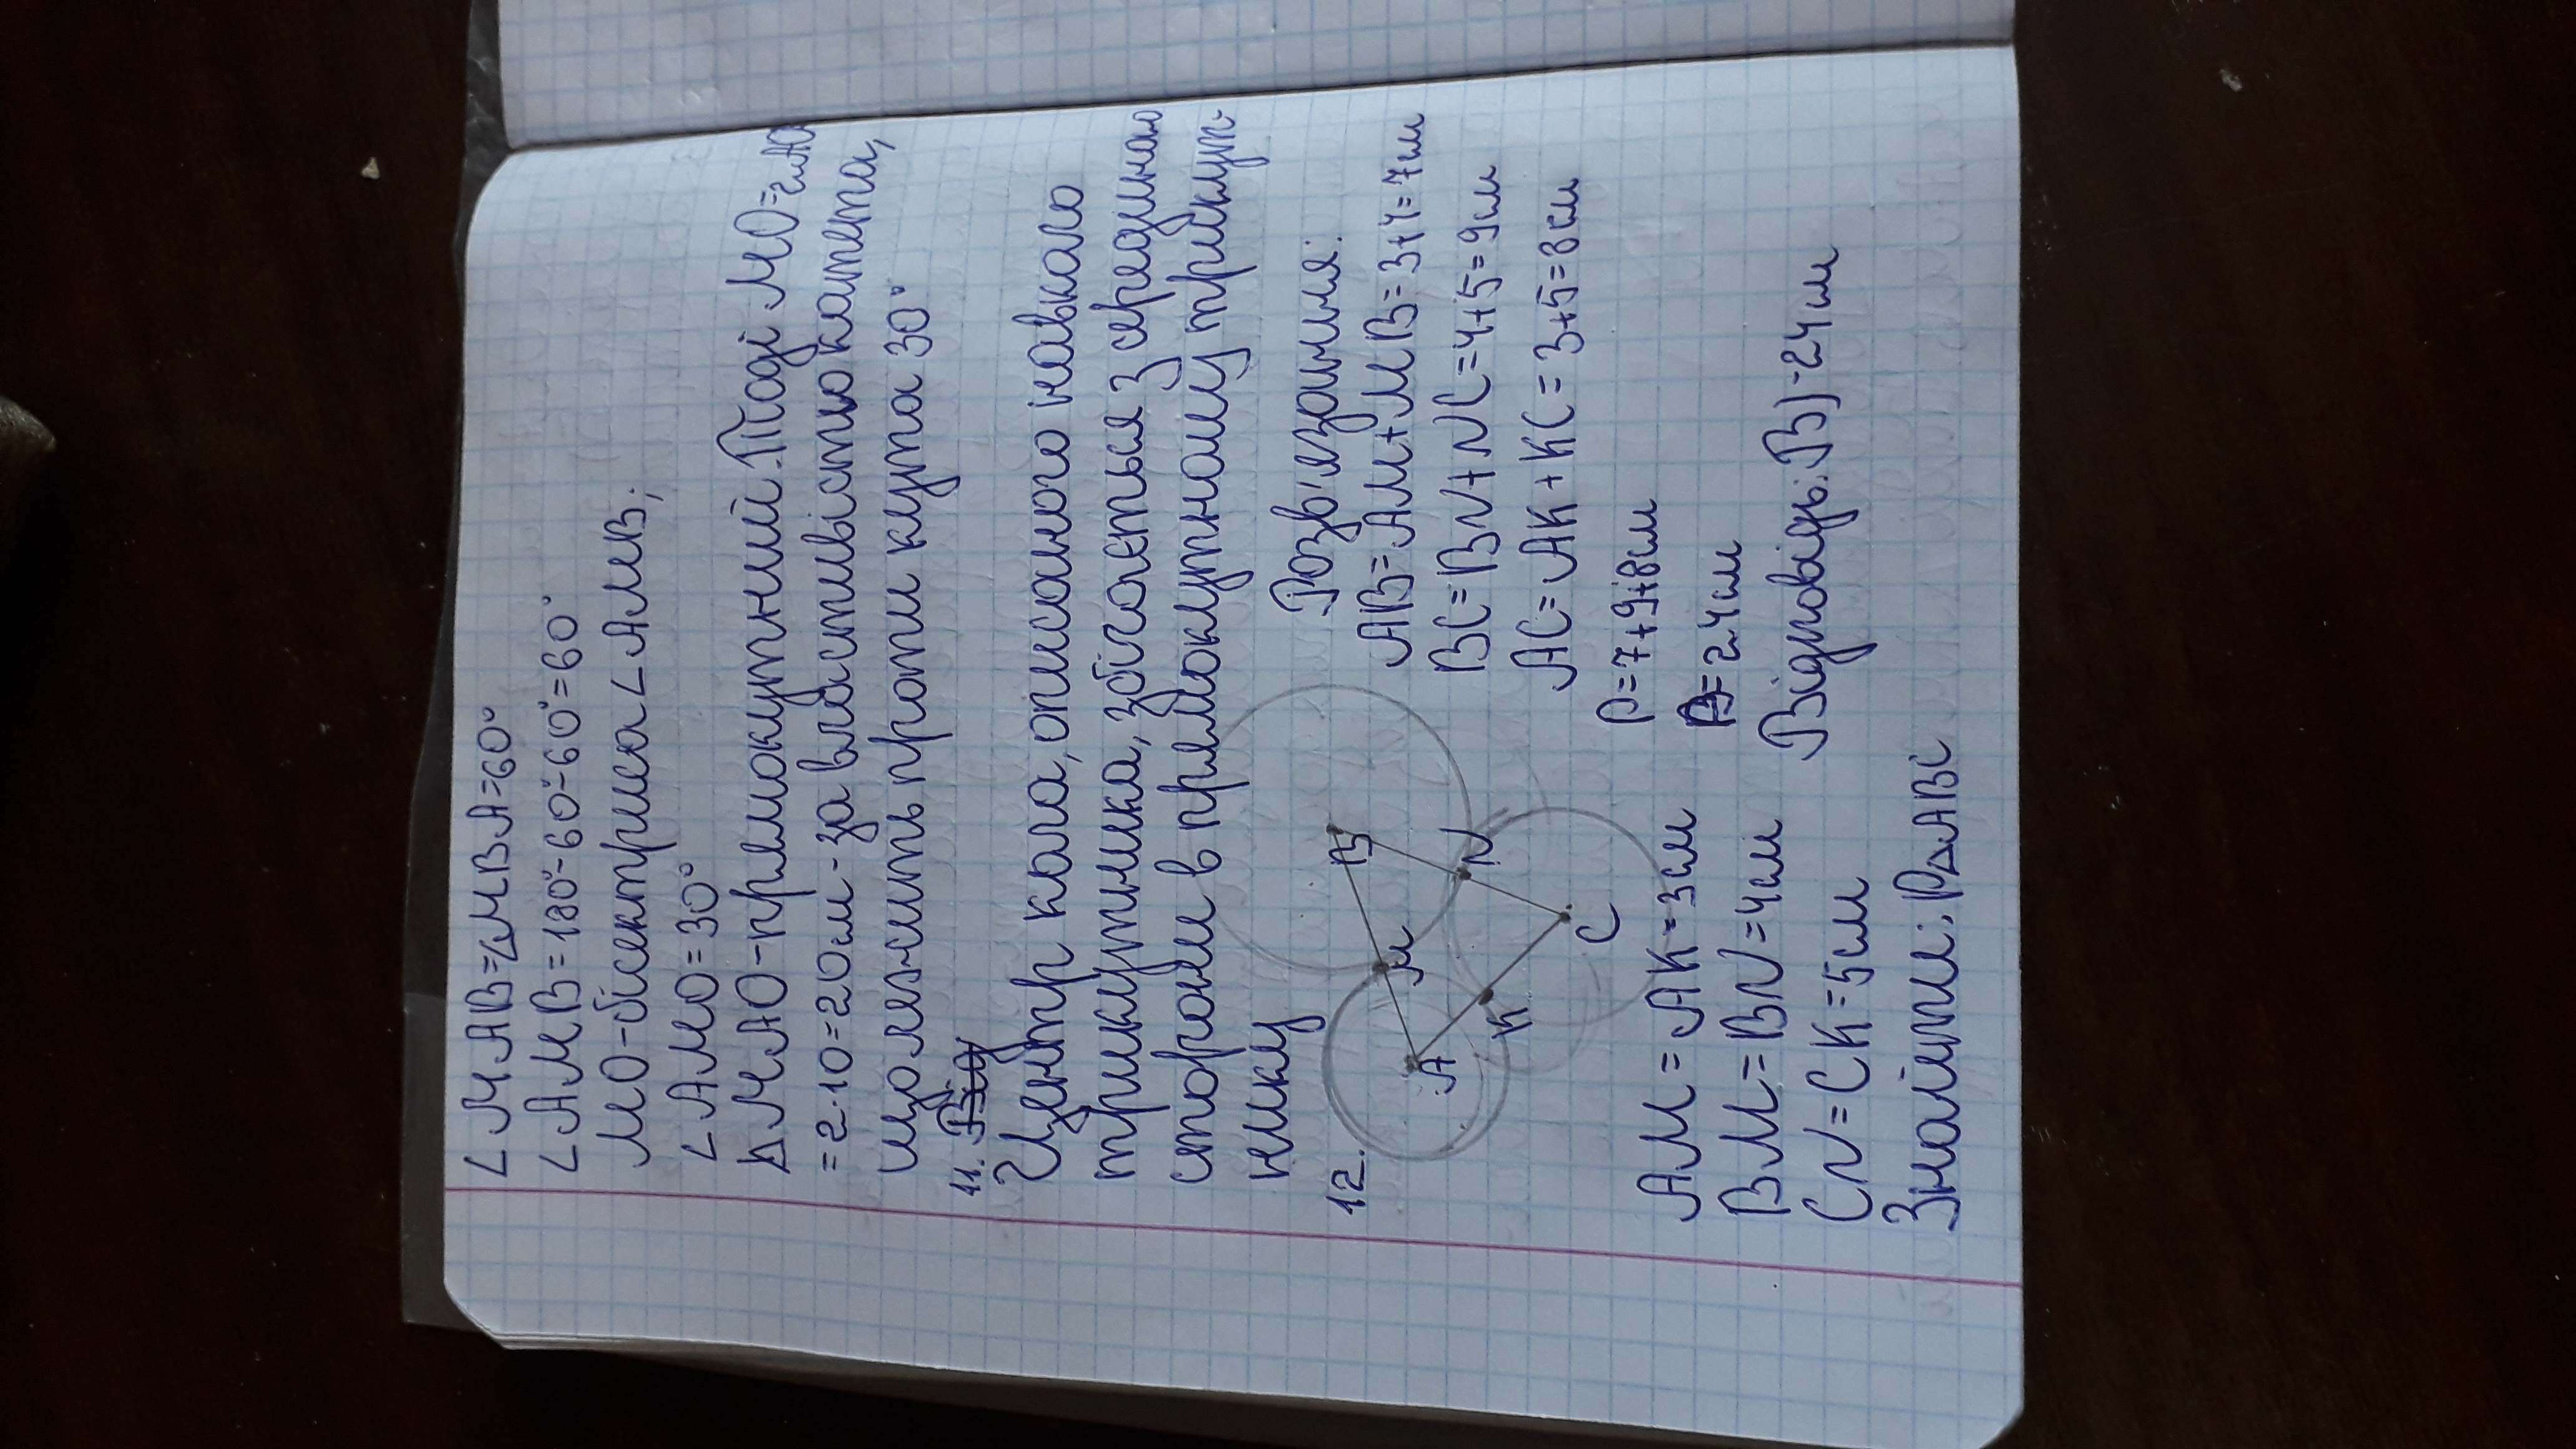 ∠MAB=∠MBA=60°
∠AMB=180°-60°-60°=60°
MO-бісектриса ∠AMB;
∠AMO=30°
△MAO-прямокутний. Тоді MO=2AO
=2·10=20см-за властивістю катета,
що лежить проти кута 30°
11.
Центр кола, описаного навколо
трикутника, збігається з серединою
сторони в прямокутному трикут-
нику
12.
B
M
N
A
K
C
AM=AK=3см
BM=BN=4см
CN=CK=5см
Знайти: P△ABC
Розв'язання:
AB=AM+MB=3+4=7см
BC=BN+NC=4+5=9см
AC=AK+KC=3+5=8см
P=7+9+8см
P=24см
Відповідь: В)-24см